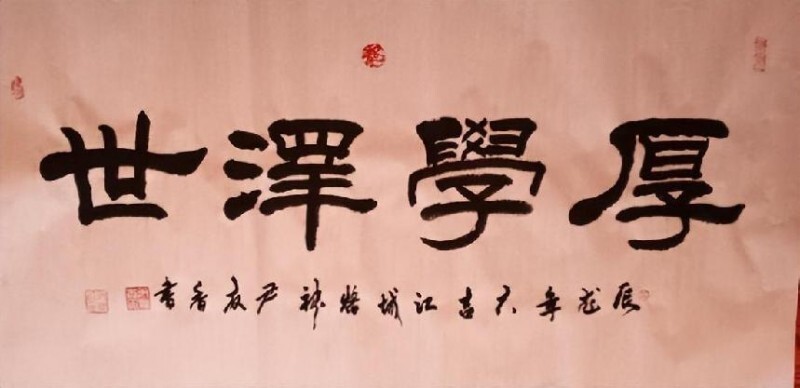 厚學澤世
辰龙年大吉江城尹友香书